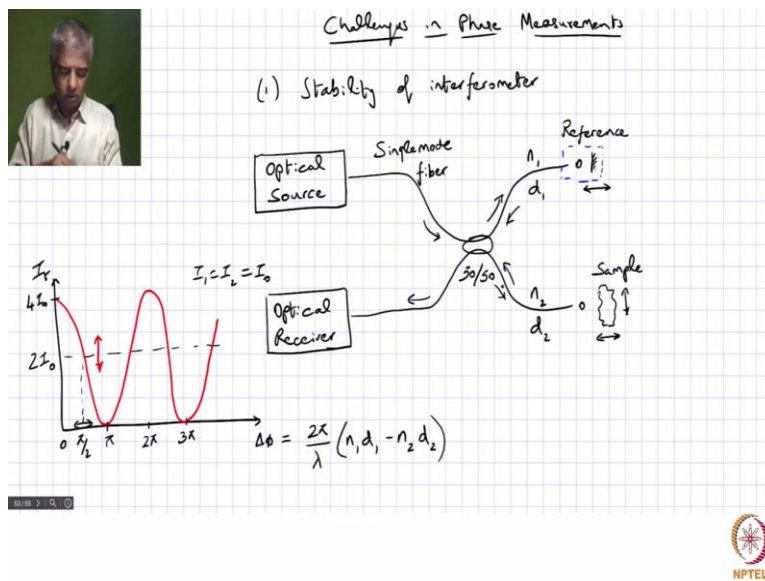 Challenges in Phase Measurements
(1) Stability of interferometer
Optical
Source
Singlemode
fiber
n₁
d₁
Reference
50/50
n₂
d₂
Sample
Optical
Receiver
Iᵣ
I₁ = I₂ = I₀
4I₀
2I₀
0 π/2 π 2π 3π
Δφ = 2π/λ (n₁d₁ - n₂d₂)
53/65
NPTEL